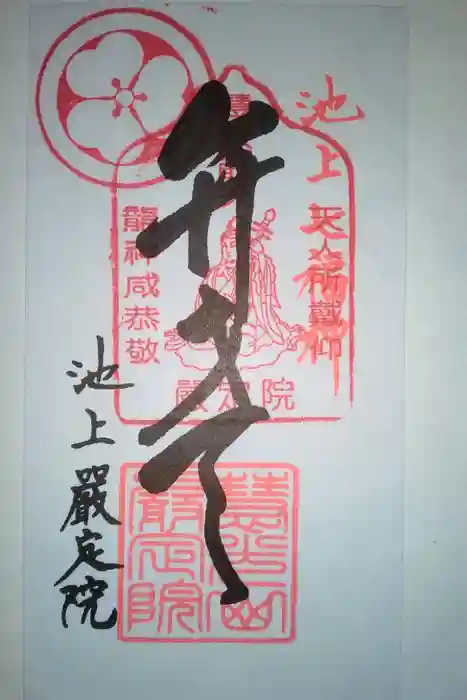 池上
弁才天
天人所戴仰
龍神咸恭敬
嚴定院
池上
嚴定院